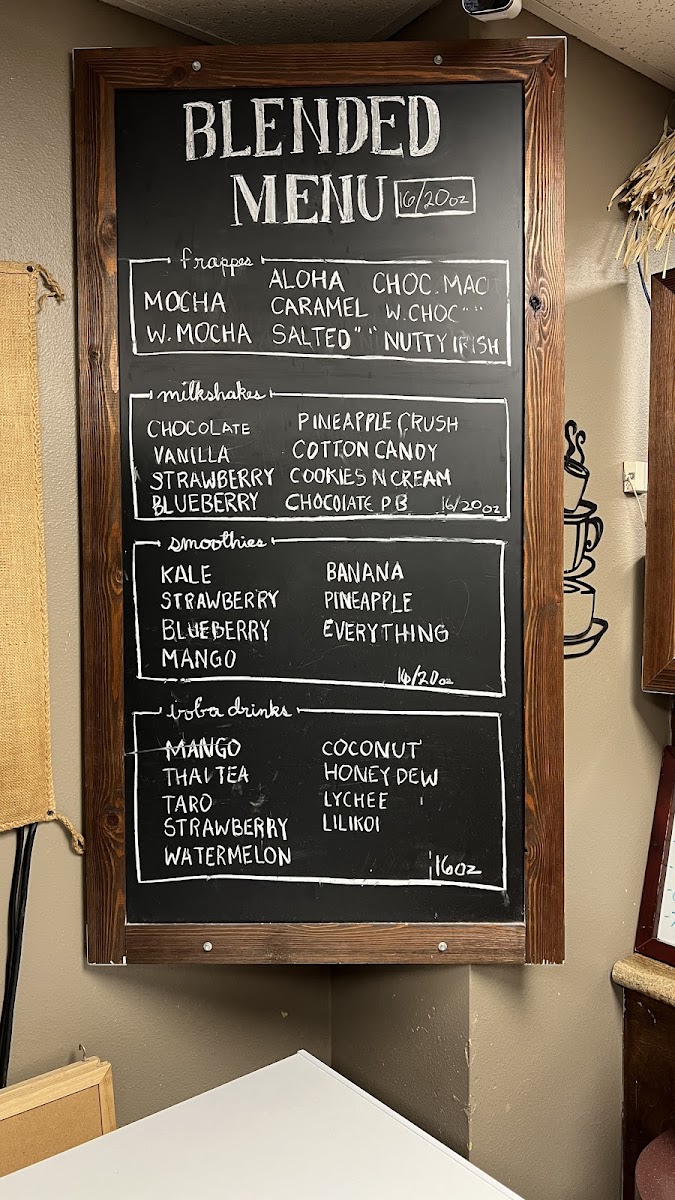 BLENDED
MENU 16/20oz
frappes
MOCHA
W. MOCHA
ALOHA
CARAMEL
SALTED " "
CHOC. MAC
W. CHOC " "
NUTTY IRISH
milkshakes
CHOCOLATE
VANILLA
STRAWBERRY
BLUEBERRY
PINEAPPLE CRUSH
COTTON CANDY
COOKIES N CREAM
CHOCOLATE PB
16/20oz
smoothies
KALE
STRAWBERRY
BLUEBERRY
MANGO
BANANA
PINEAPPLE
EVERYTHING
16/20oz
boba drinks
MANGO
THAI TEA
TARO
STRAWBERRY
WATERMELON
COCONUT
HONEYDEW
LYCHEE
LILIKOI
16oz